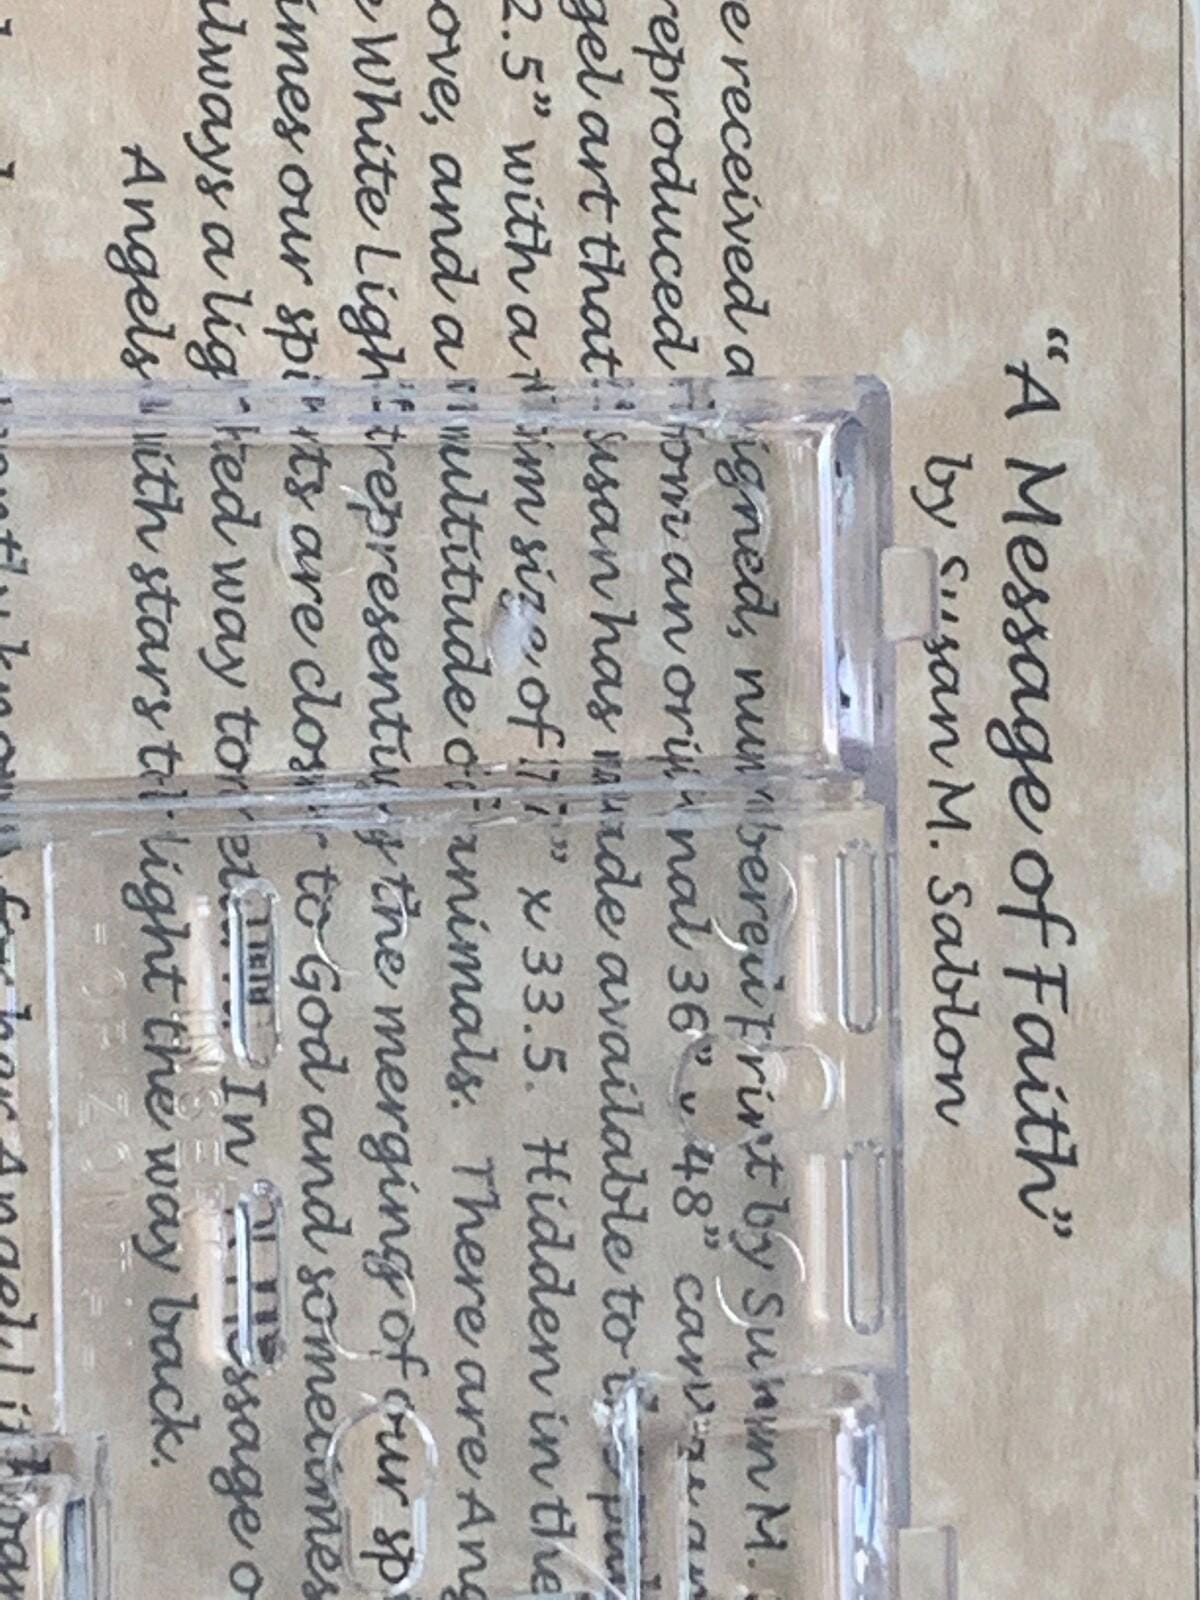 “A Message of Faith”
by Susan M. Sablon
e received a signed, numbered Print by Susan M.
reproduced from an original 36” x 48” canvas
gel art that Susan has made available to
2.5” with a trim size of 17” x 33.5. Hidden in the
ove, and a multitude of animals. There are Ang
e White Light representing the merging of our sp
imes our spirits are closer to God and sometimes
lways a lighted way to return. In Message o
Angels with stars to light the way back.
for her Angel